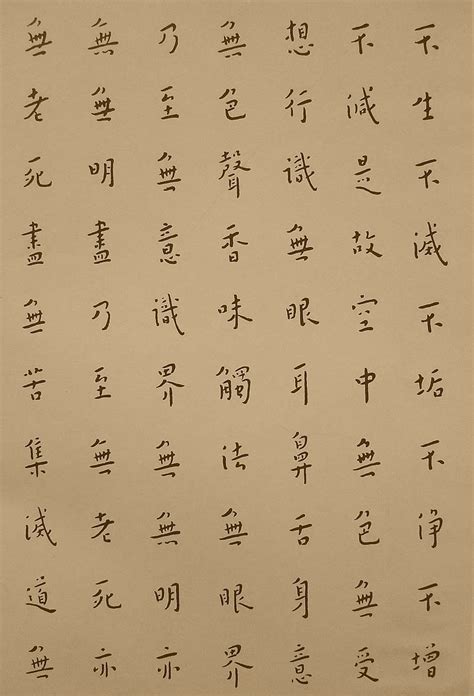 不生不滅不垢不淨不增
不減是故空中無色無受
想行識無眼耳鼻舌身意
無色聲香味觸法無眼界
乃至無意識界無無明亦
無無明盡乃至無老死亦
無老死盡無苦集滅道無